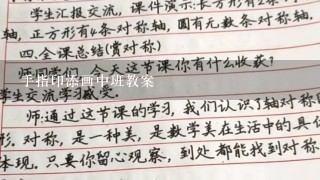 学生汇报交流,课件演示:长方形有2条
轴,正方形有4条对称轴,圆有无数条对称轴.
四.全课总结(赏对称)
今天这节课你有什么收获?
手指印添画中班教案
学生交流学习感受.
师:通过这节课的学习,我们认识了轴对称
形.对称,是一种美,是数学美在生活中的具
体现.只要你留心观察,到处都能找到对称